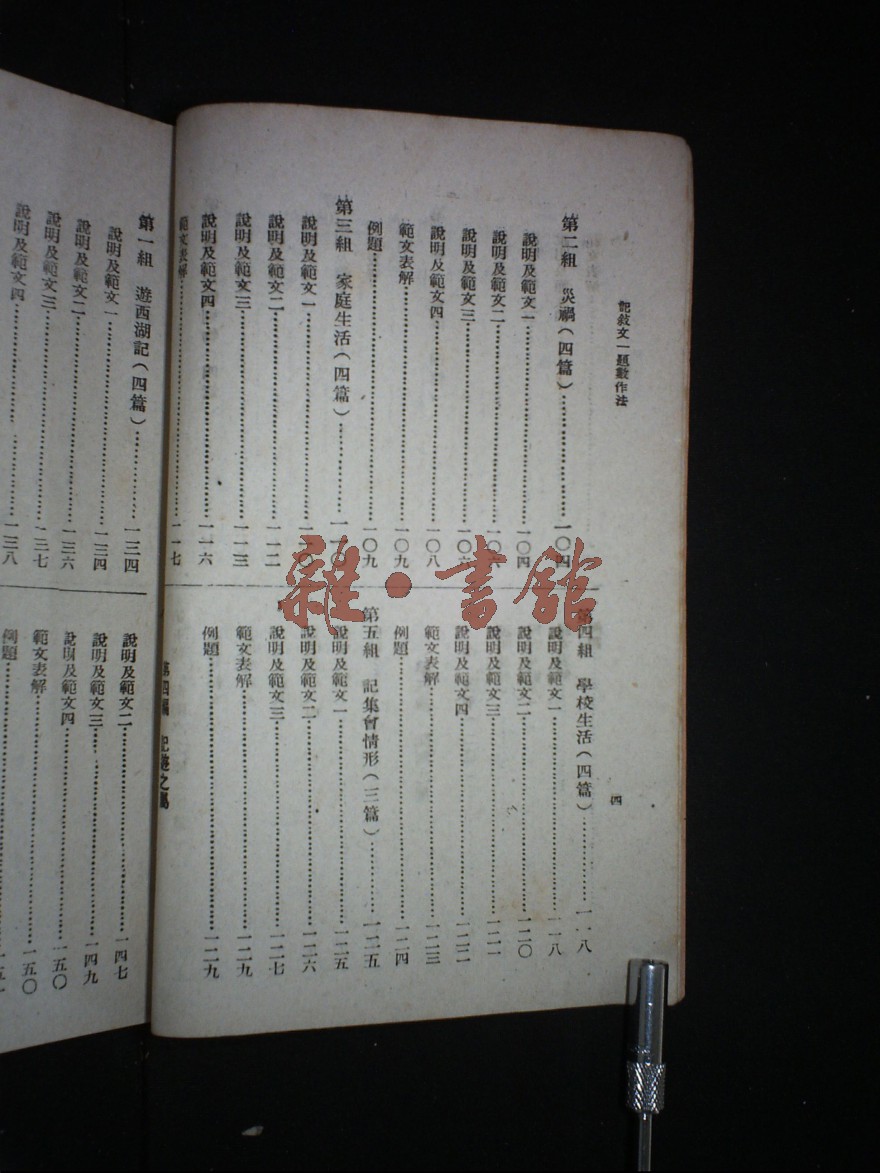 記敍文一題數作法
四
第二組　災禍（四篇）……一〇四
說明及範文一……一〇四
說明及範文二……一〇六
說明及範文三……一〇六
說明及範文四……一〇八
範文表解……一〇九
例題……一〇九
第三組　家庭生活（四篇）……一一〇
說明及範文一……一一〇
說明及範文二……一一二
說明及範文三……一一三
說明及範文四……一一六
範文表解……一一七
第四組　學校生活（四篇）……一一八
說明及範文一……一一八
說明及範文二……一二〇
說明及範文三……一二一
說明及範文四……一二二
範文表解……一二三
例題……一二四
第五組　記集會情形（三篇）……一二五
說明及範文一……一二五
說明及範文二……一二六
說明及範文三……一二七
範文表解……一二九
例題……一二九
第四編　記遊之屬
第一組　遊西湖記（四篇）……一三四
說明及範文一……一三四
說明及範文二……一三六
說明及範文三……一三七
說明及範文四……一三八
說明及範文二……一四七
說明及範文三……一四九
說明及範文四……一五〇
範文表解……一五〇
例題
雜·書館